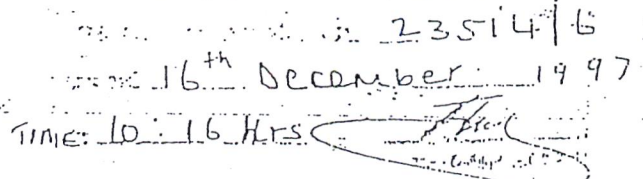 2351416
16th December 1997
TIME: 10:16 Hrs